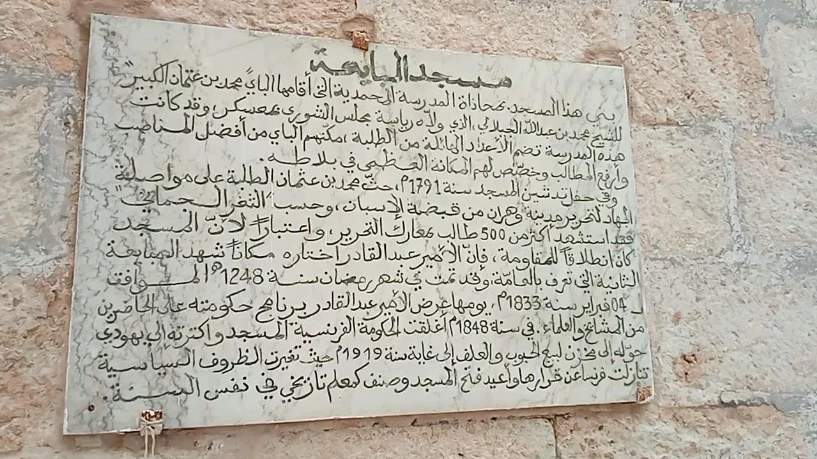 مسجد المبايعة
بني هذا المسجد بمحاذاة المدرسة المحمدية التي أقامها الباي "محمد بن عثمان الكبير"
للشيخ محمد بن عبد الله الجيلالي، الذي ولاه رياسة مجلس الشورى بمعسكر، وقد كانت
هذه المدرسة تضم الأعداد الهائلة من الطلبة، مكنهم الباي من أفضل المناصب
وأرفع المطالب وخصّص لهم المكانة العظمى في بلاطه.
وفي حفل تدشين المسجد سنة 1791م، حثّ محمد بن عثمان الطلبة على مواصلة
الجهاد لتحرير مدينة وهران من قبضة الإسبان، وحسب "الثغر الجماني"
فقد استشهد أكثر من 500 طالب بمعارك التحرير، واعتباراً لأنّ المسجد
كان انطلاقاً للمقاومة، فإنّ الأمير عبد القادر اختاره مكاناً شهد المبايعة
الثانية التي تعرف بالعامّة وقد تمت في شهر رمضان سنة 1248هـ الموافق
لـ 04 فبراير سنة 1833م، يومها عرض الأمير عبد القادر برنامج حكومته على الحاضرين
من المشائخ والعلماء. في سنة 1848م أغلقت الحكومة الفرنسية المسجد واكترته إلى يهودي
حوّله إلى مخزن لبيع الحبوب والعلف إلى غاية سنة 1919م حيث تغيرت الظروف السياسية
تنازلت فرنسا عن قرارها وأعيد فتح المسجد وصنف كمعلم تاريخي في نفس السنة.